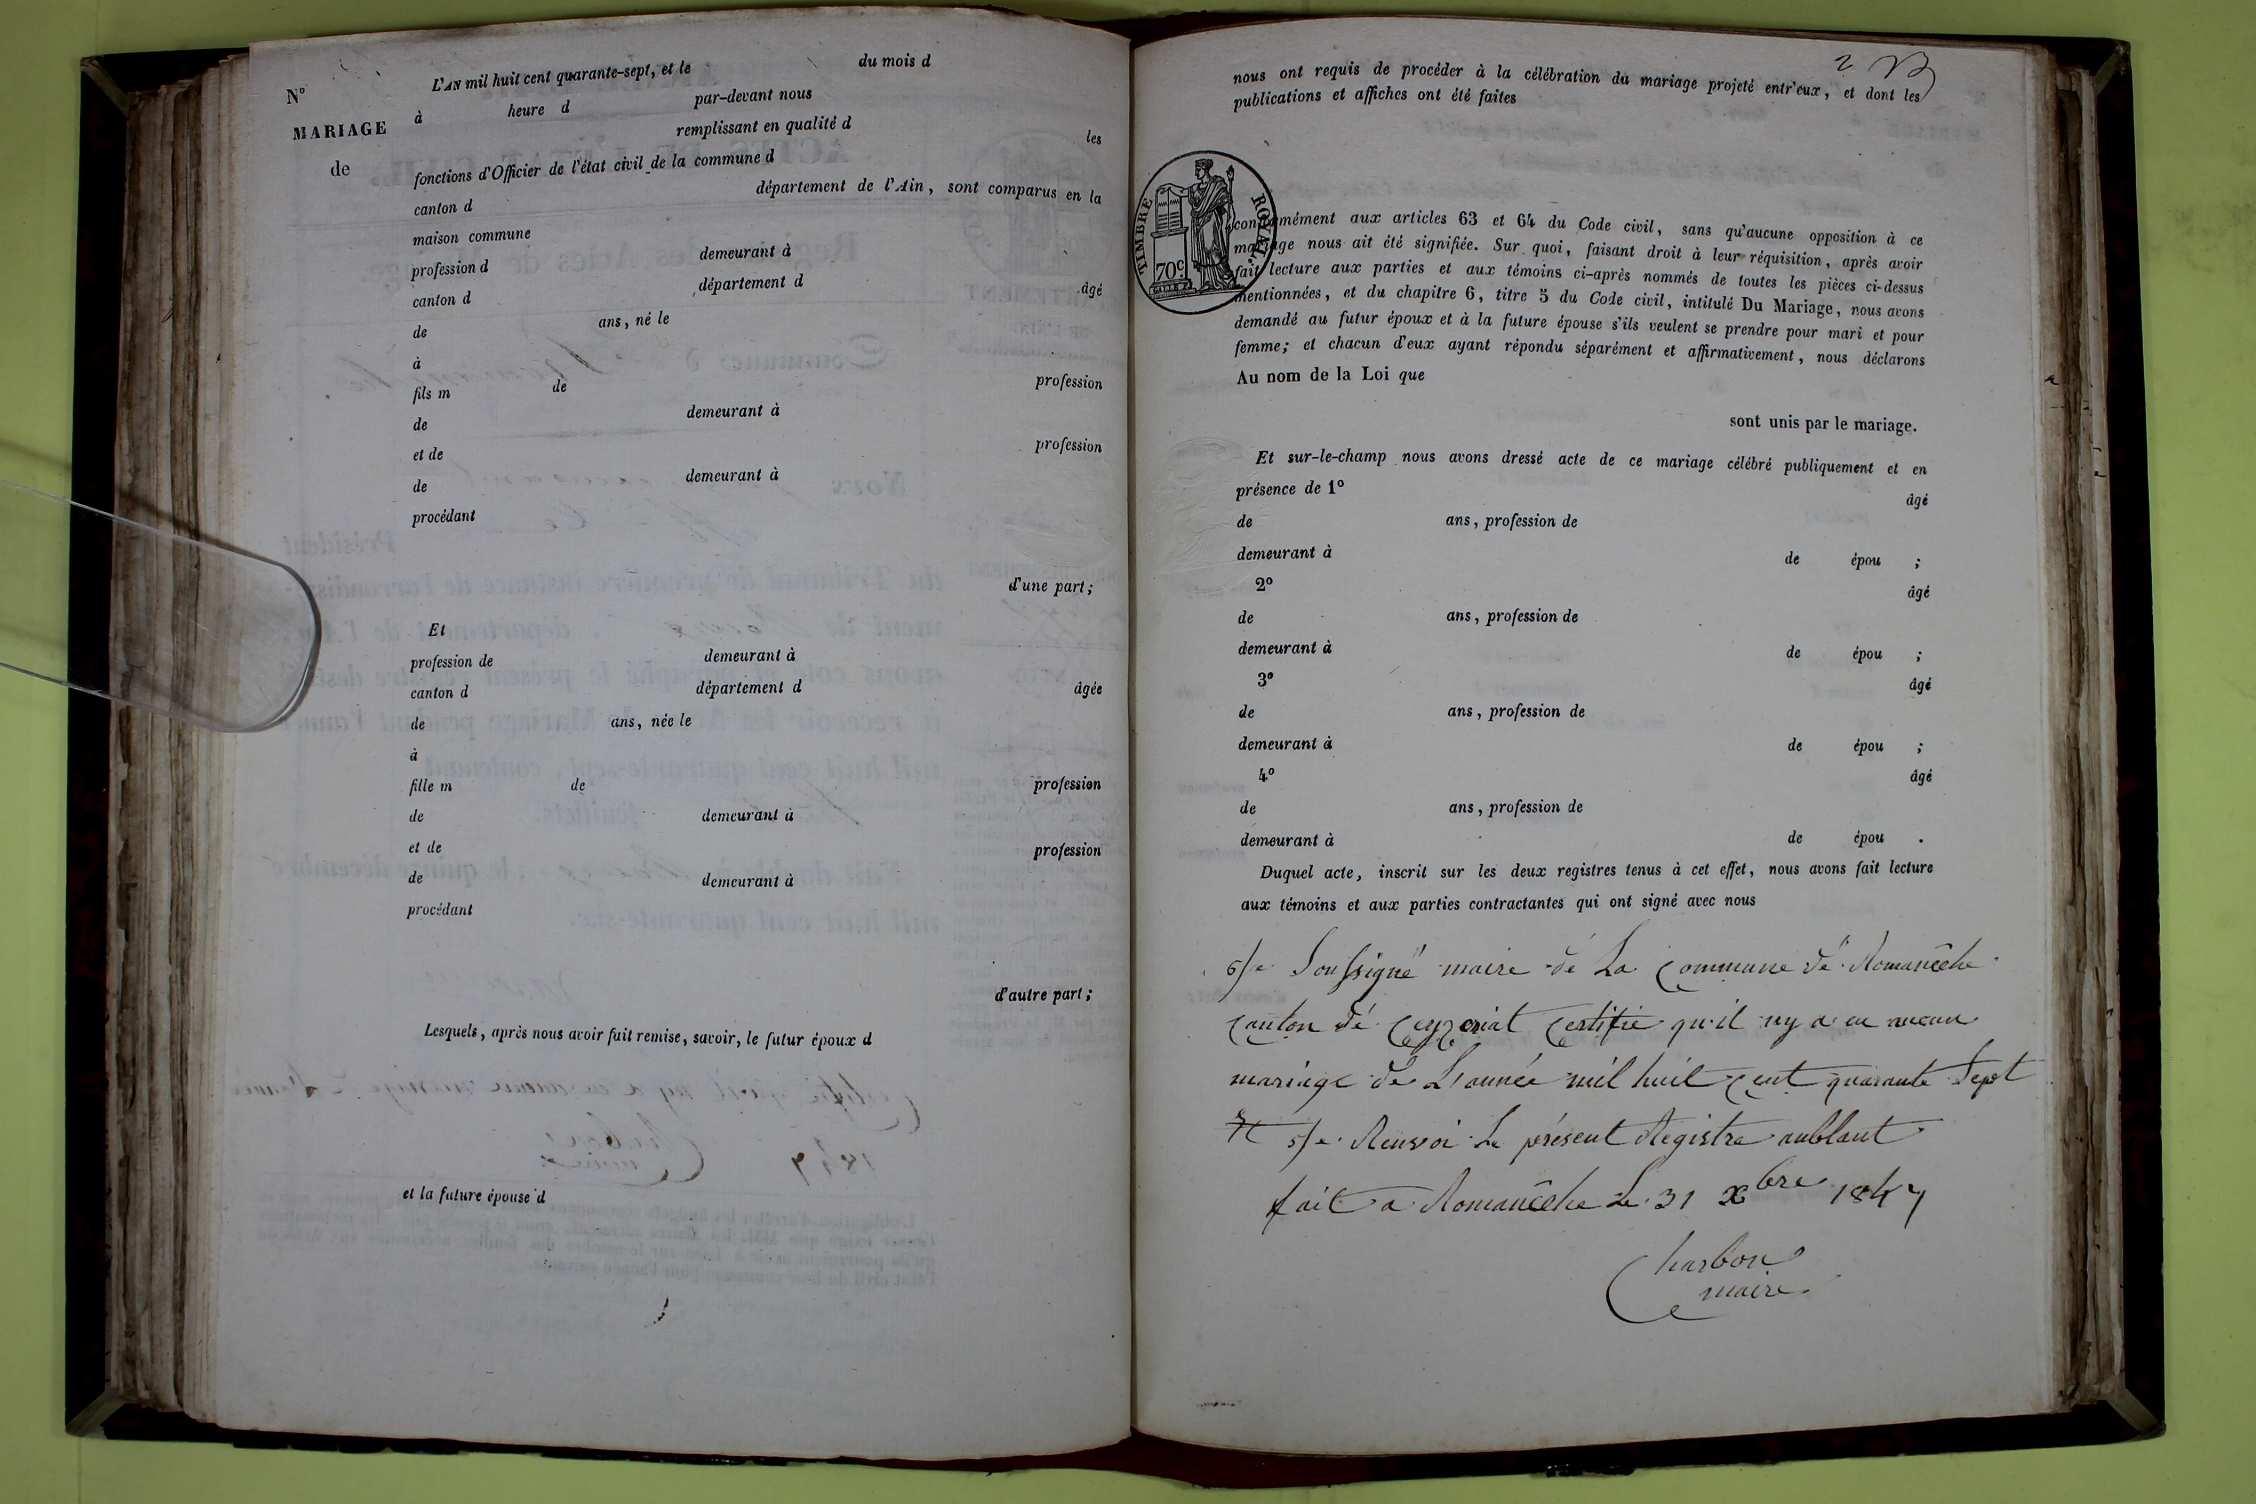 N°
MARIAGE
de
L'AN mil huit cent quarante-sept, et le du mois d
à heure d par-devant nous
remplissant en qualité d les
fonctions d'Officier de l'état civil de la commune d
canton d département de l'Ain, sont comparus en la
maison commune
profession d demeurant à
canton d département d âgé
de ans, né le
à
fils m de profession
de demeurant à
et de profession
de demeurant à
procédant
d'une part;
Et
profession de demeurant à
canton d département d âgée
de ans, née le
à
fille m de profession
de demeurant à
et de profession
de demeurant à
procédant
d'autre part;
Lesquels, après nous avoir fait remise, savoir, le futur époux d
et la future épouse d
2
nous ont requis de procéder à la célébration du mariage projeté entr'eux, et dont les
publications et affiches ont été faites
TIMBRE ROYAL.
70c.
conformément aux articles 63 et 64 du Code civil, sans qu'aucune opposition à ce
mariage nous ait été signifiée. Sur quoi, faisant droit à leur réquisition, après avoir
fait lecture aux parties et aux témoins ci-après nommés de toutes les pièces ci-dessus
mentionnées, et du chapitre 6, titre 5 du Code civil, intitulé Du Mariage, nous avons
demandé au futur époux et à la future épouse s'ils veulent se prendre pour mari et pour
femme; et chacun d'eux ayant répondu séparément et affirmativement, nous déclarons
Au nom de la Loi que
sont unis par le mariage.
Et sur-le-champ nous avons dressé acte de ce mariage célébré publiquement et en
présence de 1° âgé
de ans, profession de
demeurant à de épou ;
2° âgé
de ans, profession de
demeurant à de épou ;
3° âgé
de ans, profession de
demeurant à de épou ;
4° âgé
de ans, profession de
demeurant à de épou .
Duquel acte, inscrit sur les deux registres tenus à cet effet, nous avons fait lecture
aux témoins et aux parties contractantes qui ont signé avec nous
Soussigné maire dé La Commune dé Romanêche
Canton dé Ceyzeriat Certifie qu'il ny a eu aucun
mariage de L'année mil huit cent quarante Sept
Le présent Registre
fait a Romanêche Le 31 xbre 1847
Charbon
maire